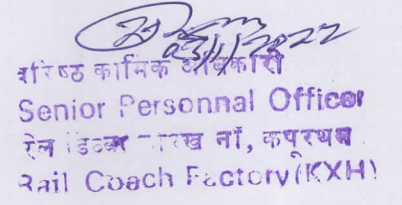 23/11/2022
वरिष्ठ कार्मिक अधिकारी
Senior Personnal Officer
रेल डिब्बा कारखाना, कपूरथला
Rail Coach Factory (KXH)